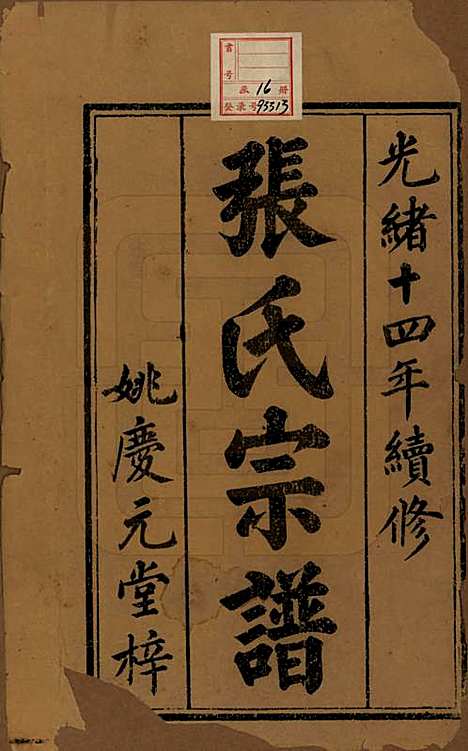 書號
函 16 冊
登录号 93313
光緒十四年續修
張氏宗譜
姚慶元堂梓